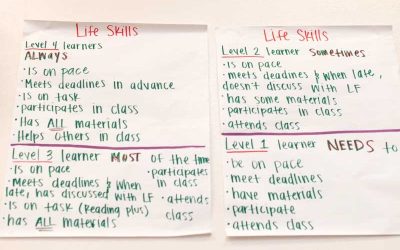 Life Skills
Level 4 learners
ALWAYS
· Is on pace
· Meets deadlines in advance
· Is on task
· participates in class
· Has ALL materials
· Helps others in class
Level 3 learner MOST of the time
· Is on pace
· participates in class
· Meets deadlines & when late, has discussed with LF
· attends class
· Is on task (Reading plus)
· has ALL materials
Life Skills
Level 2 learner Sometimes
· is on pace
· meets deadines & when late,
doesn't discuss with LF
· has some materials
· participates in class
· attends class
Level 1 learner NEEDS to
· be on pace
· meet deadlines
· have materials
· participate
· attends class